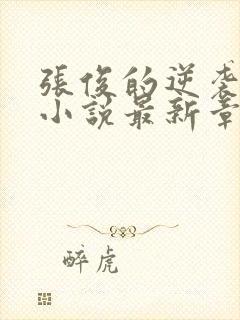 張俊的逆袭
小說最新章
醉虎